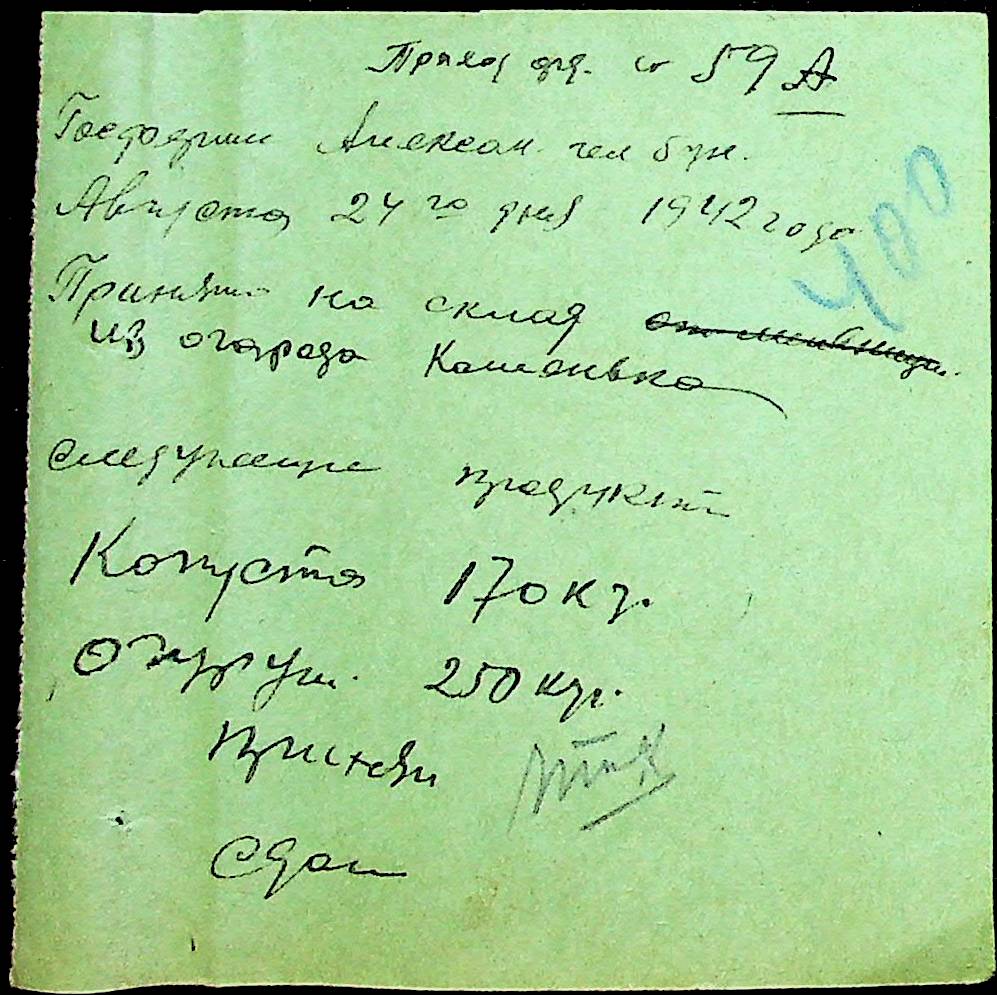 Приход орд. № 59 А
Александ.
Августа 24 го дня 1942 года
400
Принято на склад
из огорода Каменька
следующие продукты
Капуста 170 кг.
Огурцы. 250 кгр.
Принял
Сдал